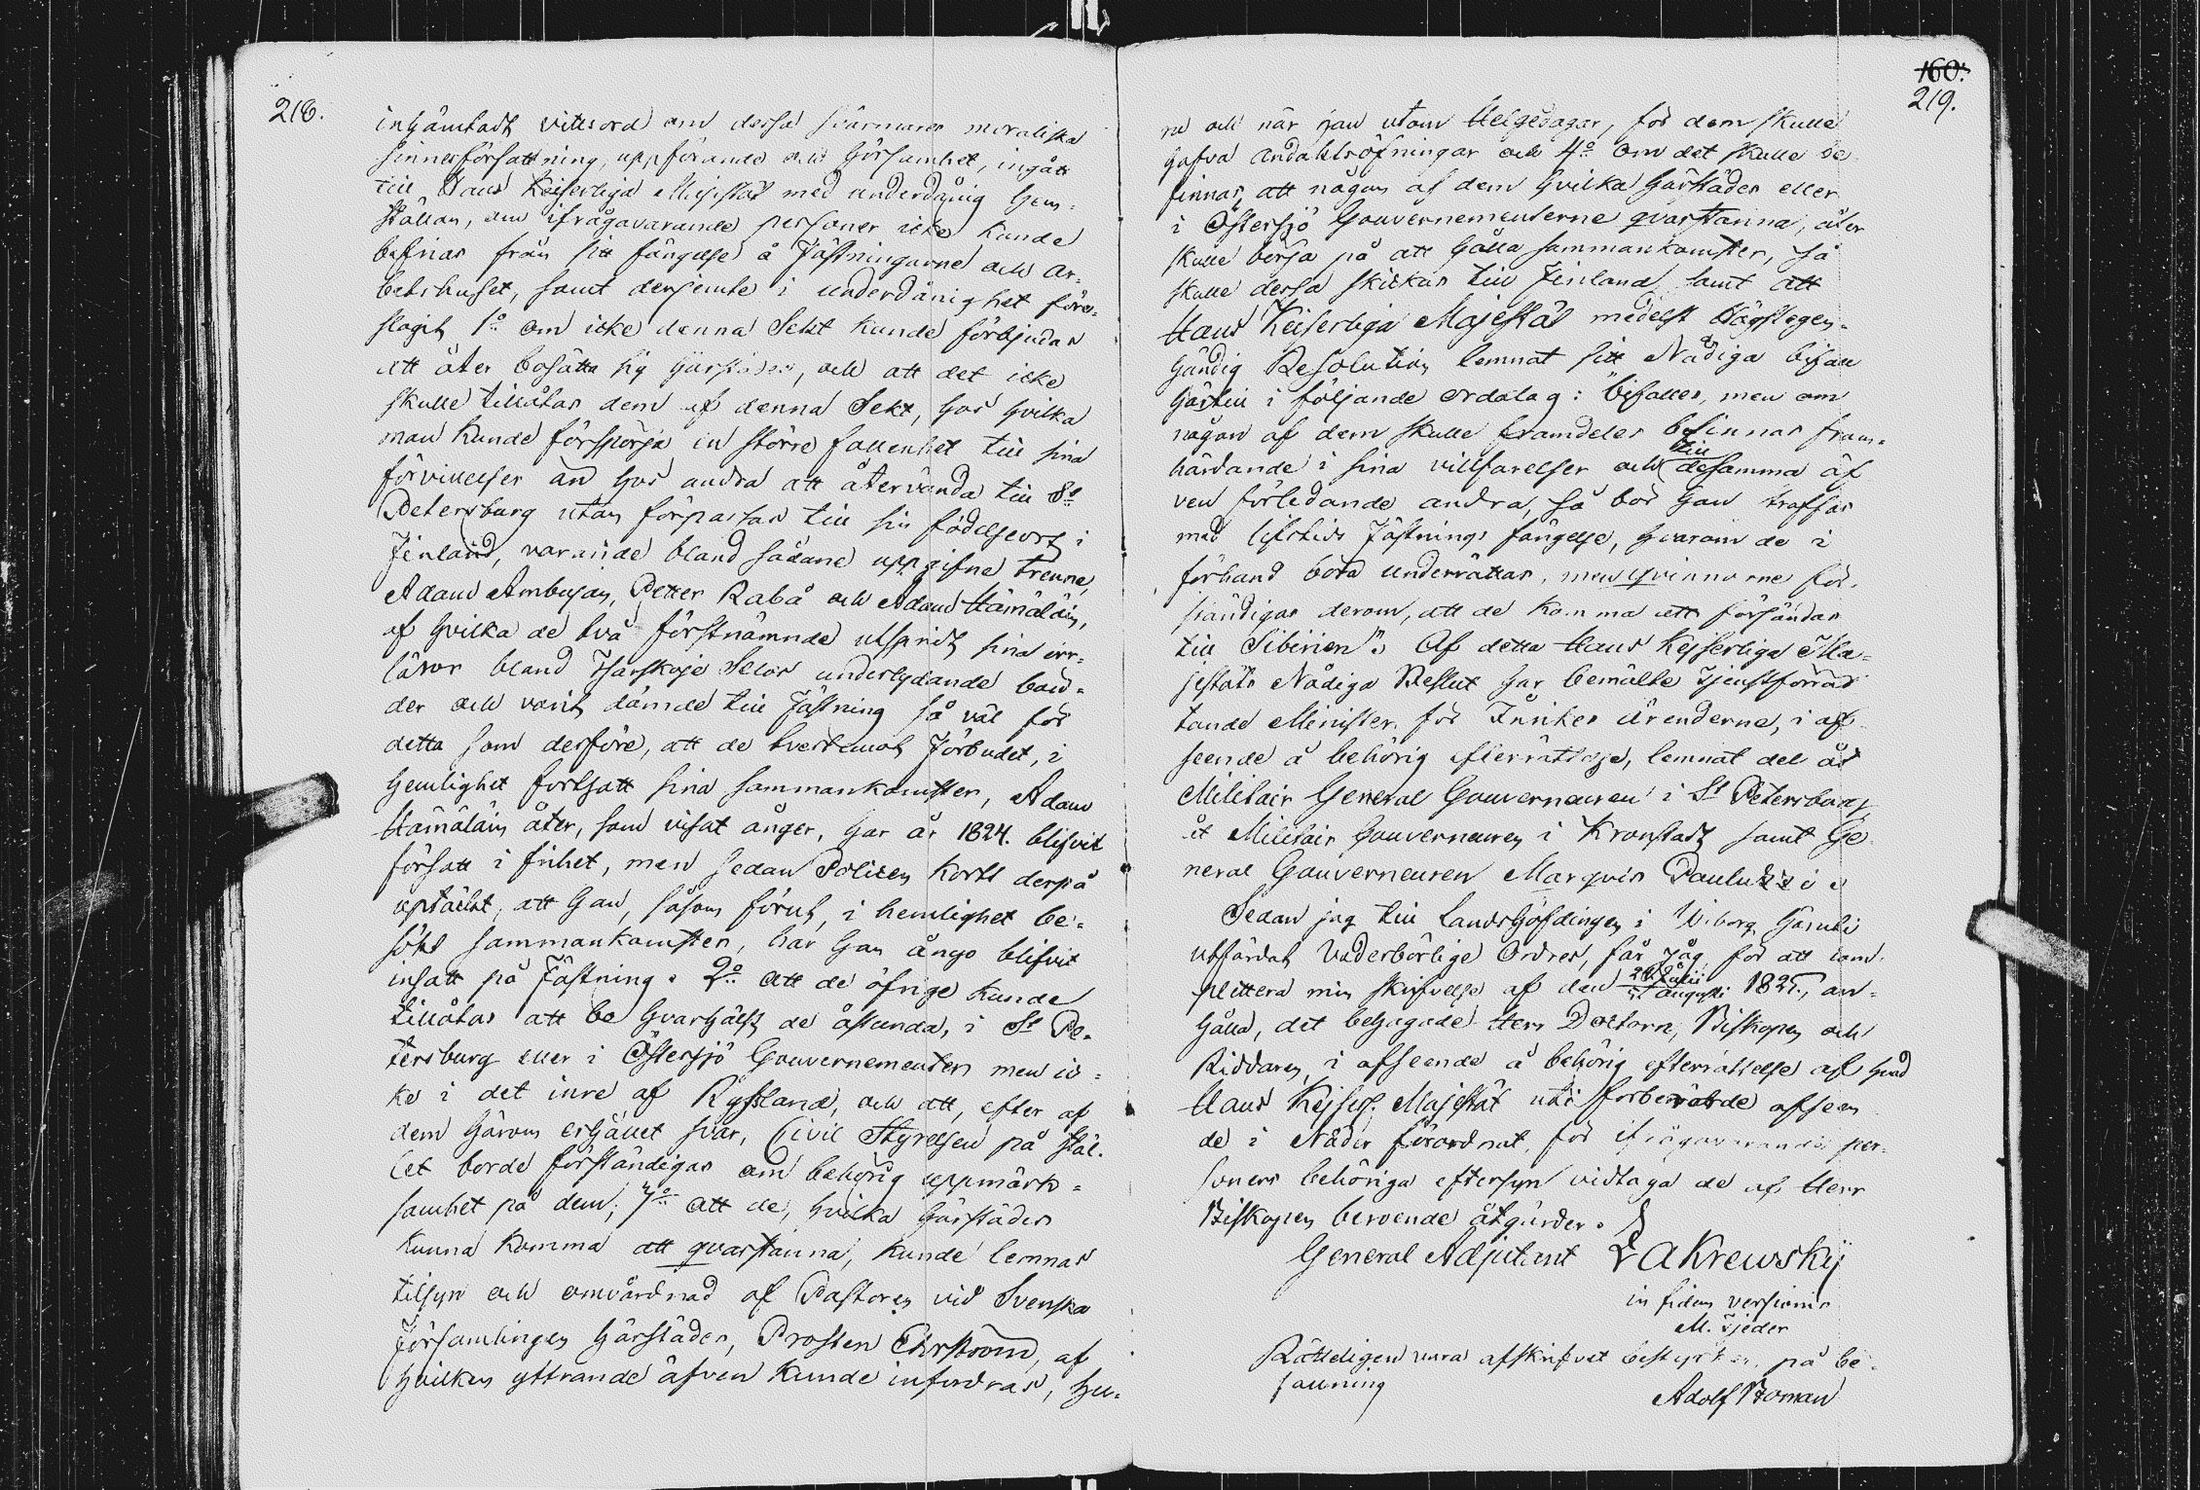 218.
inhämtadt vitesord om dessa svärmares moraliska
sinnesförfattning, uppförande och hörsamhet, ingått
till Hans Keiserliga Majestät med underdånig hem-
ställan, om ifrågavarande personer icke kunde
befrias från sitt fängelse å Fästningarne och ar-
betshuset, samt dersemte i underdånighet före-
slagit 1:o om icke denna Sekt kunde förbjudas
att åter bosätta sig härstädes, och att det icke
skulle tillåtas dem af denna Sekt, hos hvilka
man kunde förspörja en större fallenhet till sina
förvillelser än hos andra att återvända till S:t
Petersburg utan förpassas till sin födelseort i
Finland, varande bland sådane uppgifne trenne,
Adam Ambusan, Petter Rabå och Adam Hämäläin,
af hvilka de två förstnämnde utspridt sina irr-
läror bland Tsarskoje Selos underlydande bön-
der och varit dömde till Fästning så väl för
detta som derföre, att de tvertemot förbudet, i
hemlighet fortsatt sina sammankomster, Adam
Hämäläin åter, som visat ånger, har år 1824. blifvit
försatt i frihet, men sedan Policen kort derpå
uptäckt, att han, såsom förut, i hemlighet be-
sökt sammankomster, har han ånyo blifvit
insatt på Fästning. 2:o att de öfrige kunde
tillåtas att bo hvarhälst de åstunda, i S:t Pe-
tersburg eller i Östersjö Gouvernementen men ic-
ke i det inre af Ryssland, och att, efter af
dem härom erhållet svar, Civil Styrelsen på stäl-
let borde förständigas om behörig uppmärk-
samhet på dem; 3:o att de, hvilka härstädes
kunna komma att qvarstanna, kunde lemnas
tilsyn och omvårdnad af Pastoren vid Svenska
Församlingen härstädes, Prosten Ehrström, af
hvilken yttrande äfven kunde infordras, hu-
160.
219.
ru och när han utom Helgedagar, för dem skulle
hafva andaktsöfningar och 4:o om det skulle be-
finnas, att någon af dem hvilka härstädes eller
i Östersjö Gouvernementerne qvarstanna, åter
skulle börja på att hålla sammankomster, så
skulle dessa skickas till Finland samt att
Hans Keiserliga Majestät medelst Högstegen-
händig Resolution lemnat sitt Nådiga bifall
härtill i följande ordalag: "bifalles, men om
någon af dem skulle framdeles befinnas fram-
härdande i sina villfarelser och till desamma äf
ven förledande andra, så bör han straffas
med lifstids Fästnings fängelse, hvarom de i
förhand böra underrättas, men qvinnorne för-
ständigas derom, att de komma att försändas
till Sibirien". Af detta Hans Kejserliga Ma-
jestäts Nådiga Beslut har bemälte Tjenstförrät
tande Minister för Inrikes ärenderne, i af-
seende å behörig efterrättelse, lemnat del åt
Militair General Gouverneuren i S:t Petersburg
åt Militair Gouverneuren i Kronstadt samt Ge
neral Gouverneuren Marquis Paulucci
Sedan jag till Landshöfdingen i Wiborg härutі
utfärdat vederbörlige Ordres, får jag, för att com-
plettera min skrifvelse af den 24 Julii / 5 Augusti 1825, an-
hålla, det behagade Herr Doctorn, Biskopen och
Riddaren, i afseende å behörig efterrättelse af hvad
Hans Kejserl. Majestät uti förberörde afseen
de i Nåder förordnat, för ifrågavarande per-
soners behöriga eftersyn vidtaga de af Herr
Biskopen beroende åtgärder.
General Adjutant Zakrewskij
in fidem versionis
M. Tjeder
Rätteligen vara afskrifvet bestyrker, på be-
fallning
Adolf Boman